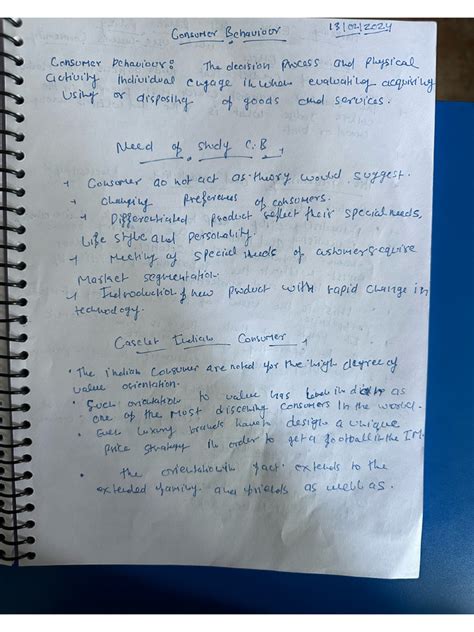 Consumer Behaviour
13/02/2024
Consumer Behaviour: The decision process and physical
activity individual engage in when evaluating acquiring
using or disposing of goods and services.
Need of study C.B
Consumer do not act as theory would suggest.
Changing Preferences of consumers.
Differentiated product reflect their special needs,
Life style and personality.
Meeting of special needs of customers require
Market segmentation.
Introduction of new product with rapid change in
technology.
Caselet Indian Consumer
The indian consumer are noted for the high degree of
value orientation.
Such orientation to value has as
one of the most discerning consumers in the world.
Even luxury brands have design a unique
price strategy in order to get a football in the IM.
the fact extends to the
extended family and friends as well as.